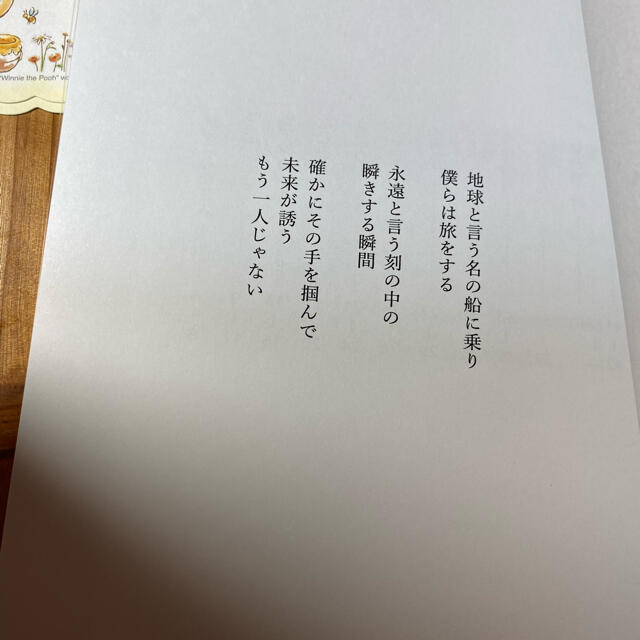 地球と言う名の船に乗り
僕らは旅をする
永遠と言う刻の中の
瞬きする瞬間
確かにその手を掴んで
未来が誘う
もう一人じゃない
"Winnie the Pooh"